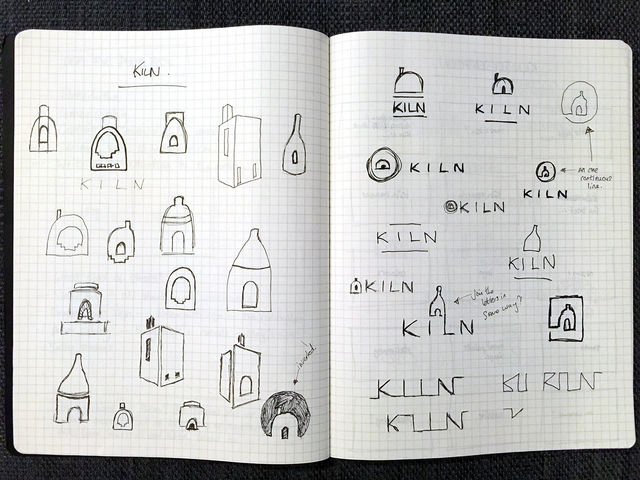 KILN.
KILN
inverted.
KILN
KILN
KILN
An one
continuous
line.
KILN
KILN
KILN
KILN
KILN
Join the
letters in
some way?
KILN
KILN
KILN
KILN